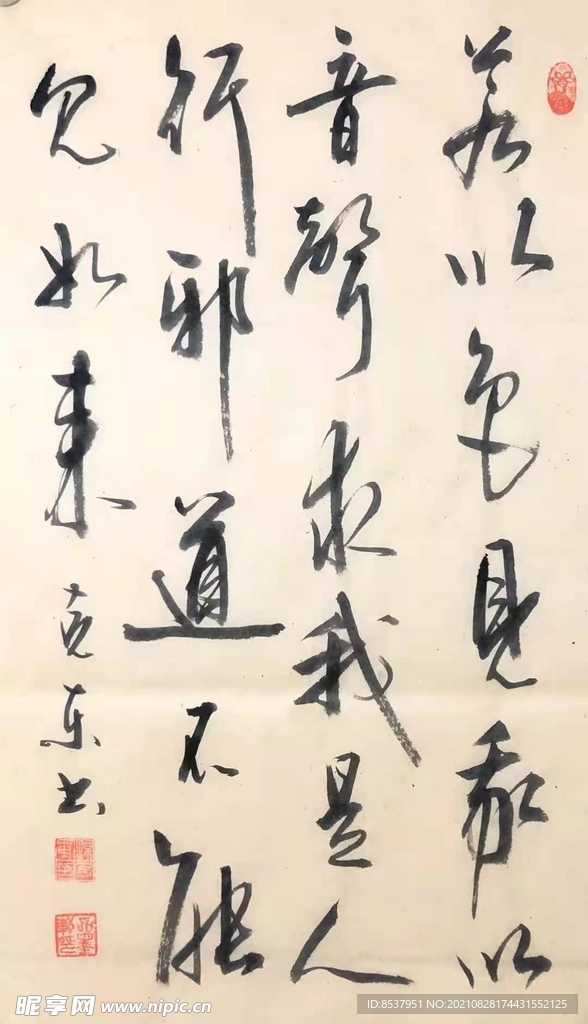 若以色见我以
音聲求我是人
行邪道不能
见如来
克东书
昵享网 www.nipic.cn
ID:8537951 NO:20210828174431552125